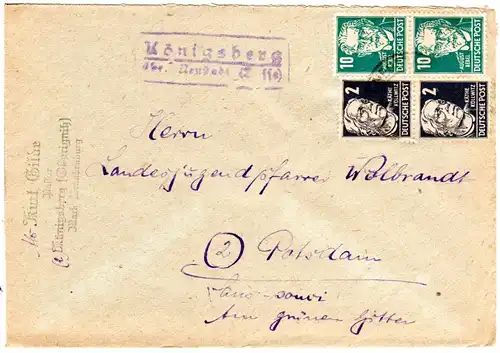 Königsberg
über Neustadt (Dosse)
10
DEUTSCHE POST
10
DEUTSCHE POST
2
KÄTHE KOLLWITZ
DEUTSCHE POST
2
KÄTHE KOLLWITZ
DEUTSCHE POST
Kurt Gilde
Pfarrer
Königsberg (Ostprignitz)
Mark Brandenburg
Herrn
Landesjugendpfarrer Wolbrandt
2 Potsdam
Sans-souci
Am grünen Gitter